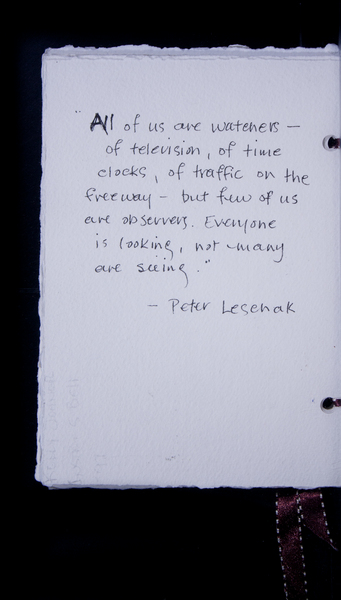 "All of us are watchers –
of television, of time
clocks, of traffic on the
freeway – but few of us
are observers. Everyone
is looking, not many
are seeing."
– Peter Lesenak